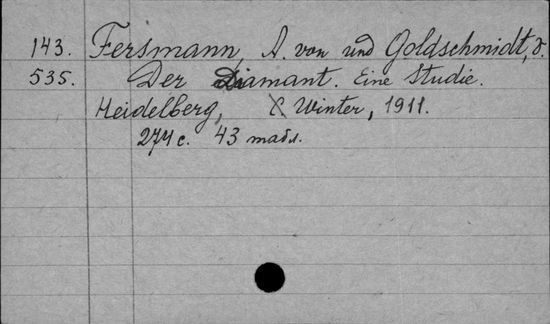 143. Fersmann, A. von und Goldschmidt, V.
535. Der Diamant. Eine Studie.
Heidelberg, C. Winter, 1911.
274 с. 43 табл.